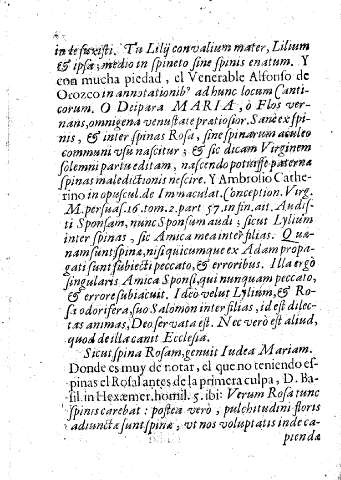 in te fuxisti. Tu Lilij convalium mater, Lilium
& ipsa; medio in spineto sine spinis enatum. Y
con mucha piedad, el Venerable Alfonso de
Orozco in annotationib° ad hunc locum Canti-
corum. O Deipara MARIA, ò Flos ver-
nans, omnigena venustate pratiosior. Sanè ex spi-
nis, & inter spinas Rosa, sine spinarum aculeo
communi vsu nascitur; & sic dicam Virginem
solemni partu editam, nascendo potuisse paterna
spinas maledictionis nescire. Y Ambrosio Cathe-
rino in opuscul. de Immaculat. Conception. Virg.
M. persuas. 16. tom. 2. part 57. in fin. ait. Audis-
ti Sponsam, nunc Sponsum audi; sicut Lylium
inter spinas, sic Amica mea inter filias. Quæ-
nam sunt spinæ, nisi quicumque ex Adam propa-
gati sunt subiecti peccato, & erroribus. Illa ergò
singularis Amica Sponsi, qui nunquam peccato,
& errore subiacuit. Idcò velut Lylium, & Ro-
sa odorifera, suo Salomon inter filias, id est dilec-
tas animas, Deo servata est. Nec verò est aliud,
quod de illa canit Ecclesia.
Sicut spina Rosam, genuit Iudea Mariam.
Donde es muy de notar, el que no teniendo es-
pinas el Rosal antes de la primera culpa, D. Ba-
sil. in Hexæmer. homil. 5. ibi: Verum Rosa tunc
spinis carebat: postea verò, pulchitudini floris
adiunctæ sunt spinæ, vt nos voluptatis inde ca-
piendæ